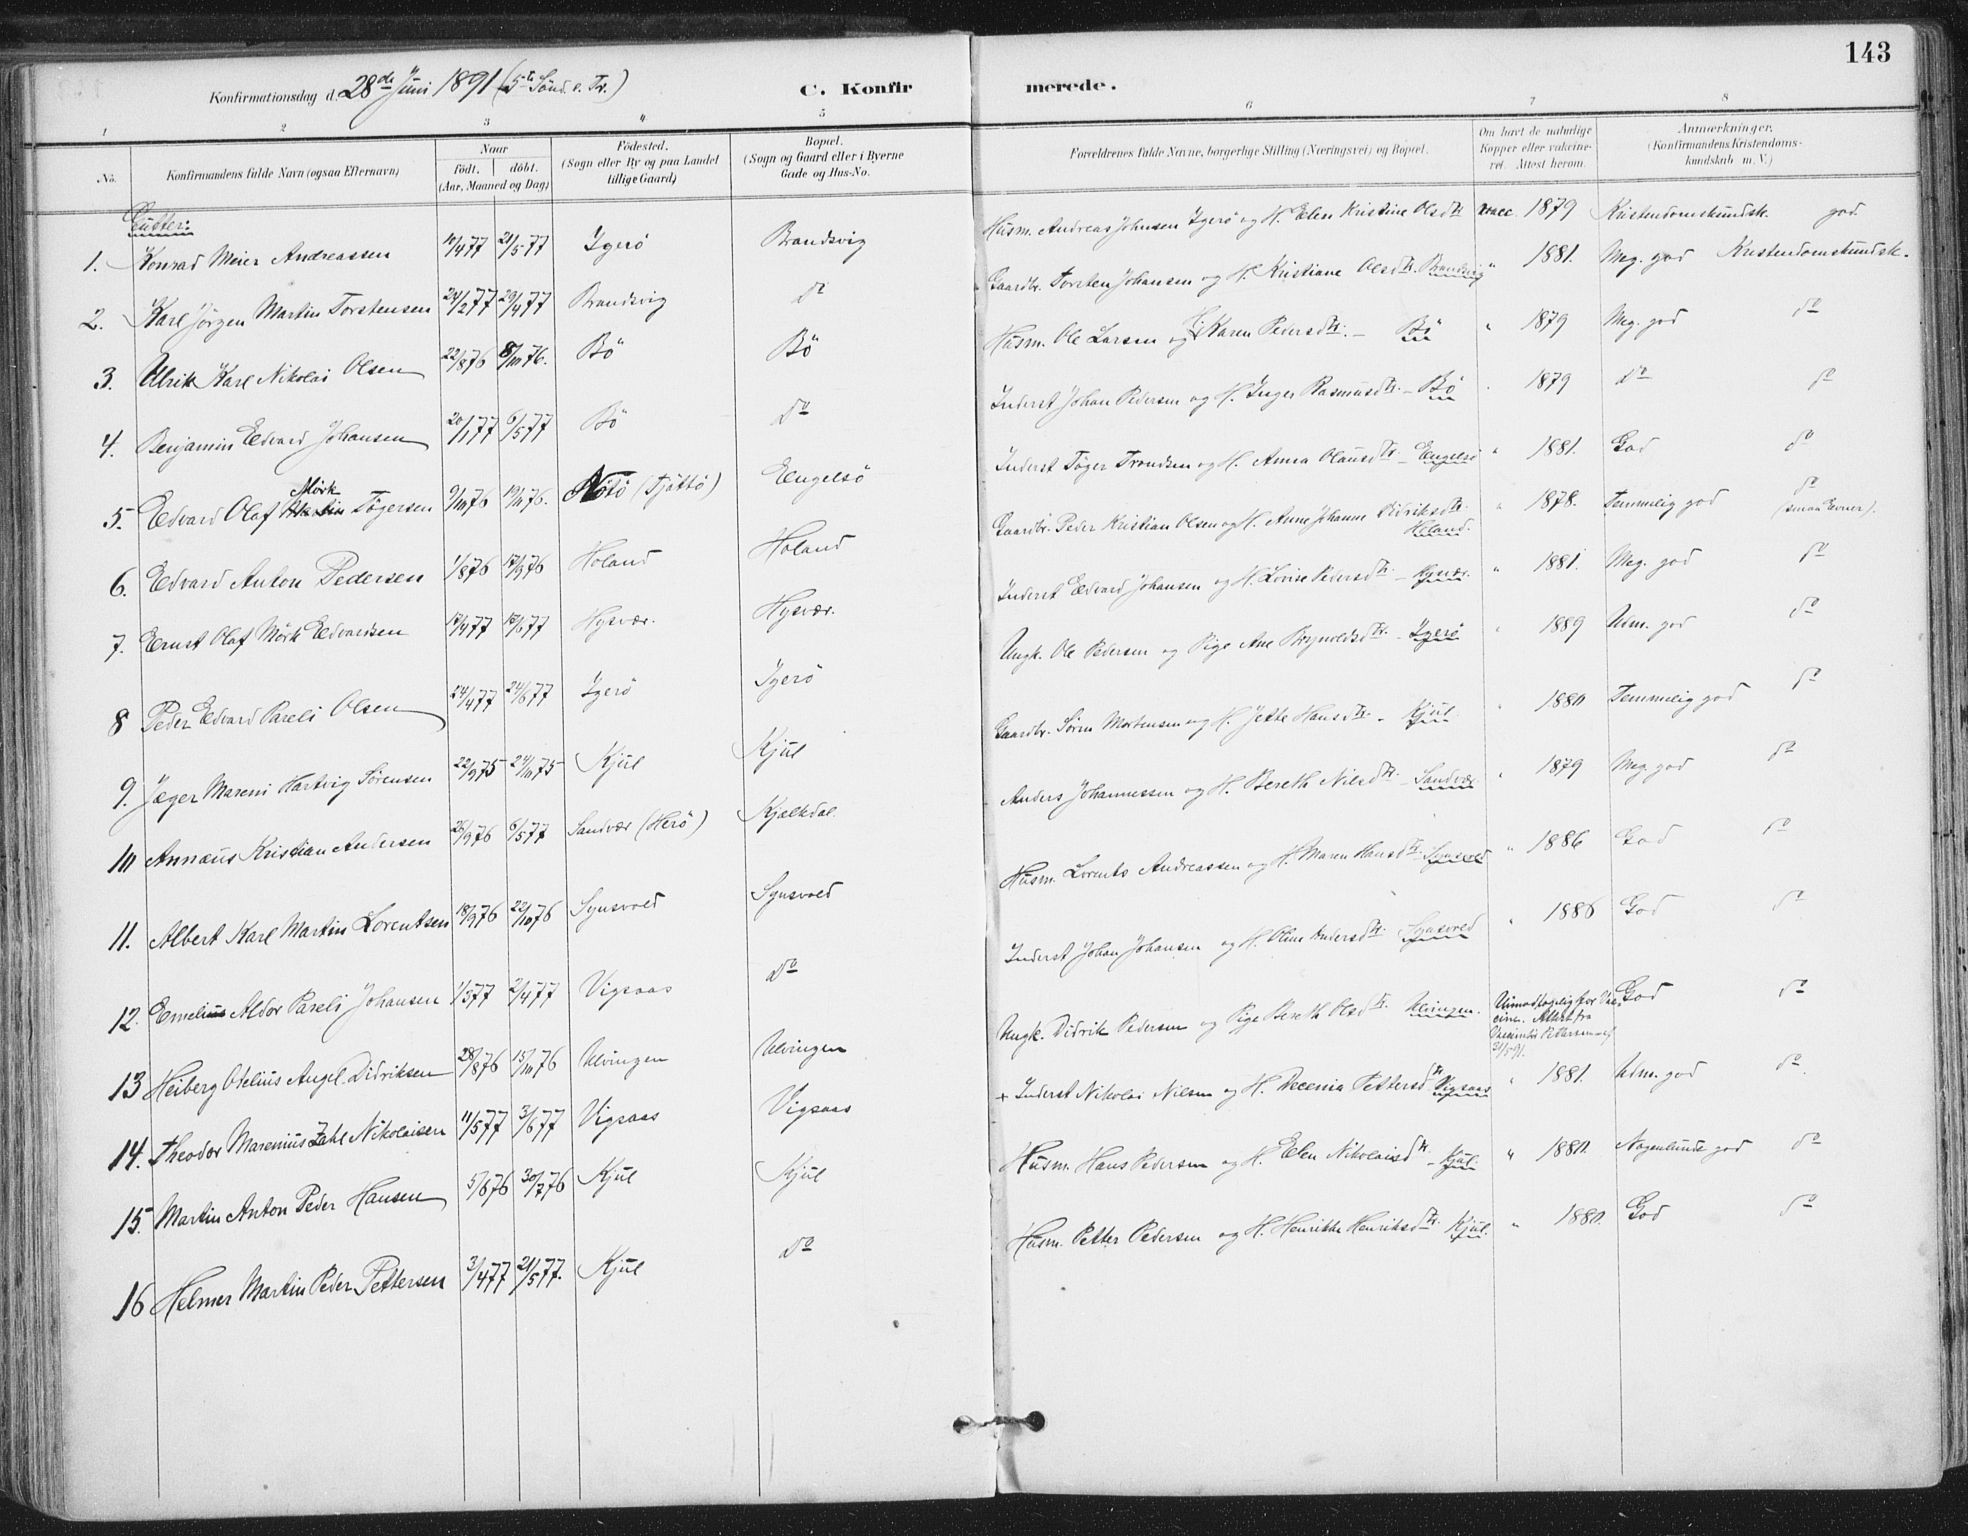 143
Konfirmationsdag d. 28de Juni 1891 (5te Sönd. e. Tr.)
C. Konfirmerede.
1 2 3 4 5 6 7 8
No.
Konfirmandens fulde Navn (ogsaa Efternavn)
Naar
födt. döbt.
(Aar, Maaned og Dag)
Födested.
(Sogn eller By og paa Landet
tillige Gaard)
Bopæl.
(Sogn og Gaard eller i Byerne
Gade og Hus-No.
Forældrenes fulde Navne, borgerlige Stilling (Næringsvei) og Bopæl.
Om havt de naturlige
Kopper eller vakcine-
ret. Attest herom.
Anmærkninger.
(Konfirmandens Kristendoms-
kundskab m. V.)
Gutter:
1. Konrad Meier Andreassen /4 77 21/5 77 Igerö Brandsvig Husm. Andreas Johnsen Igerö og H. Elen Kristine Olsdtr vacc. 1879 Kristendomskundsk. god.
2. Karl Jörgen Martin Torstensen 24/2 77 29/4 77 Brandsvig do Gaardbr. Torsten Johansen og H. Kristiane Olsdtr. Brandsvig " 1881. Meg. god Kristendomskundsk.
3. Ulrik Karl Nikolai Olsen 22/8 76 8/10 76. Bö Bö Husm. Ole Larsen og H. Karen Pedersdtr. – Bö " 1879 Meg. god do
4. Benjamin Edvard Johansen 20/1 77 6/5 77 Bö do Inderst Johan Pedersen og H. Inger Rasmusdtr. – Bö " 1879 do do
5. Edvard Olaf Mörk Tögersen 9/10 76 19/11 76. Nötö (Tjöttö) Engelsö Inderst Töger Trondsen og H. Anna Olausdtr – Engelsö " 1881. God do
6. Edvard Anton Pedersen 1/8 76 17/9 76 Holand Holand Gaardbr. Peder Kristian Olsen og H. Anne Johanne Didriksdtr. Holand. " 1878. Temmelig god do (smaa Evner).
7. Ernst Olaf Mörk Edvardsen 17/4 77 /6 77 Hysvær. Hysvær. Inderst Edvard Johansen og H. Lovise Pedersdtr – Hysvær. " 1881. Meg. god do
8 Peder Edvard Pareli Olsen 24/4 77 24/6 77 Igerö Igerö Ungk. Ole Pedersen og Pige Ane Brynoldsdtr. – Igerö " 1889 Udm. god do
9. Jæger Mareni Hartvig Sörensen 22/9 75 24/10 75 Kjul Kjul Gaardbr. Sören Mortensen og H. Jette Hansdtr. – Kjul. " 1880 Temmelig god do
10 Annæus Kristian Andersen 26/9 76 6/5 77 Sandvær (Herö) Kjælkdal. Anders Johannessen og H. Bereth Nilsdtr. – Sandvær " 1879 Meg. god do
11. Albert Karl Martin Lorentsen 18/9 76 22/10 76 Synsvold Synsvold Husm. Lorents Andreassen og H. Maren Hansdtr. Synsvold " 1886 God do
12. Emelius Aldor Pareli Johansen 1/3 77 2/4 77 Vigsaas do Inderst Johan Johansen og H. Oline Andersdtr. Synsvold " 1886 God do
13 Heiberg Odelius Angel. Didriksen 28/8 76 15/10 76 Ulvingen Ulvingen Ungk. Didrik Pedersen og Pige Bereth Olsdtr. Ulvingen. Uimodtagelig for Vaccine. Attest fra 31/5 91. God do
14. Theodor Marenius Zahl Nikolaisen 11/5 77 3/6 77 Vigsaas Vigsaas + Inderst Nikolai Nilsen og H. Decenia Pettersdtr Vigsaas " 1881. Udm. god do
15. Martin Anton Peder Hansen 5/6 76 30/7 76 Kjul Kjul Husm. Hans Pedersen og H. Elen Nikolaisdtr – Kjul. " 1880. Nogenlunde god do
16 Helmer Martin Peder Pettersen 3/4 77 21/5 77. Kjul do Husm. Petter Pedersen og H. Henrikke Henriksdtr. Kjul. " 1880. God do